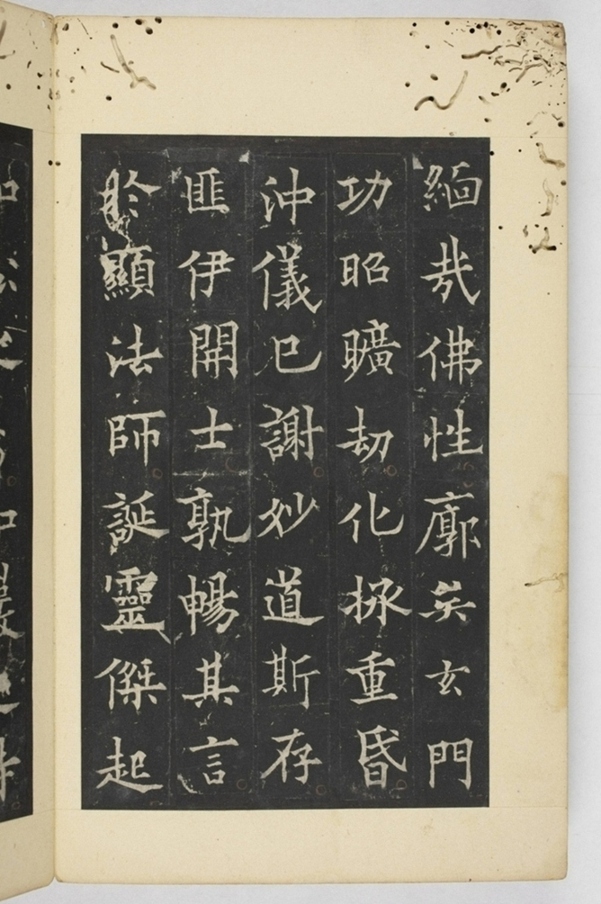 緬哉佛性廓矣玄門
功昭曠劫化拯重昬
沖儀已謝妙道斯存
匪伊開士孰暢其言
於顯法師誕靈傑起